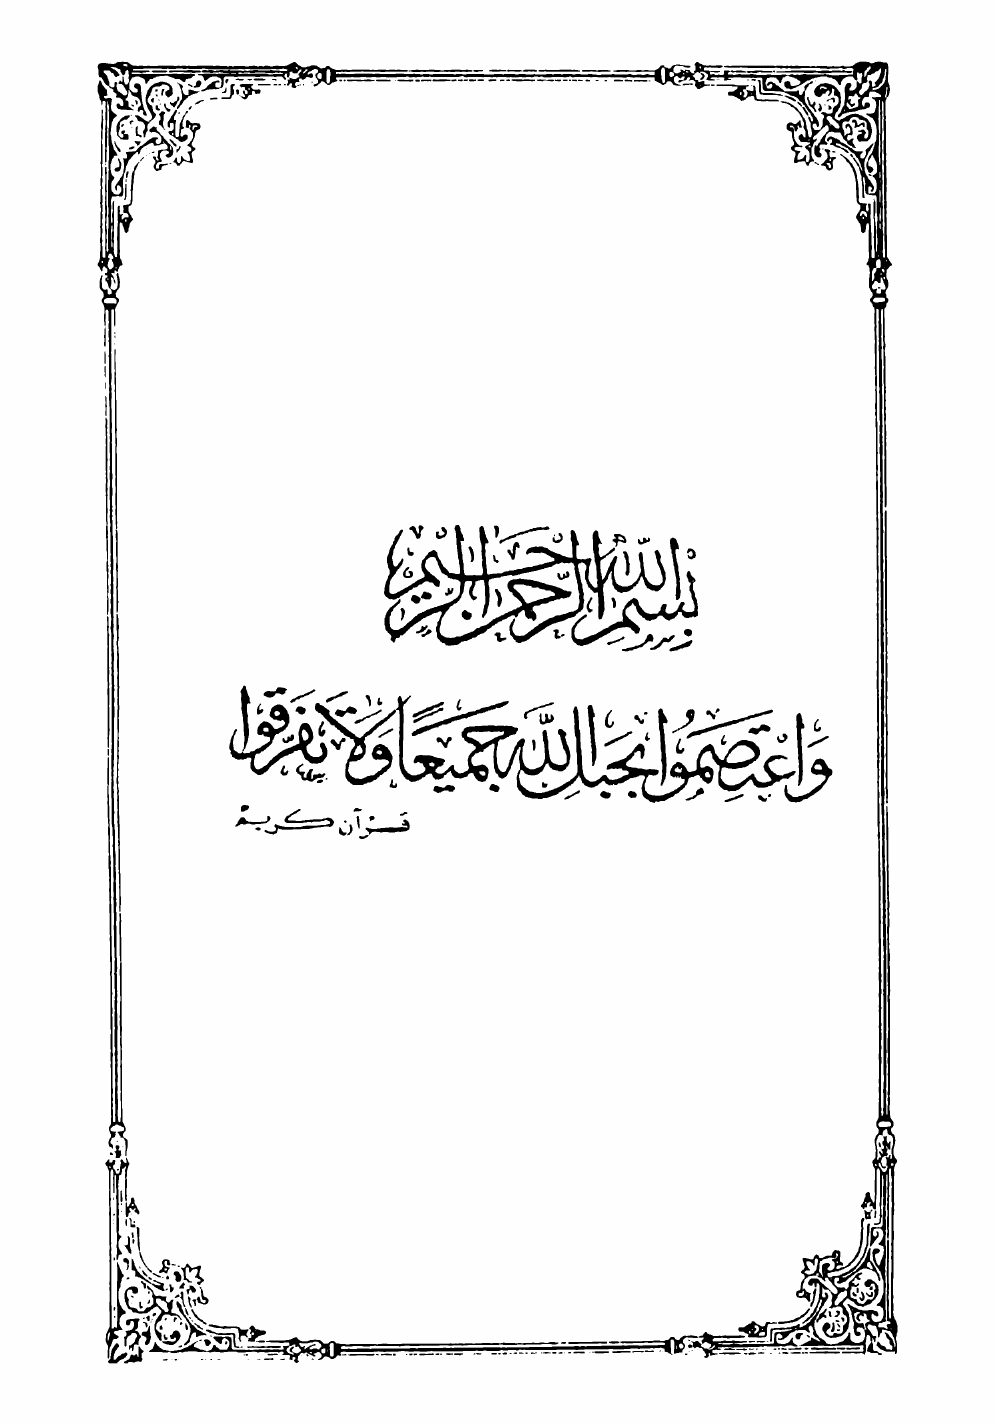 بِسْمِ اللَّهِ الرَّحْمَنِ الرَّحِيمِ
وَاعْتَصِمُوا بِحَبْلِ اللَّهِ جَمِيعًا وَلَا تَفَرَّقُوا
قرآن كريم